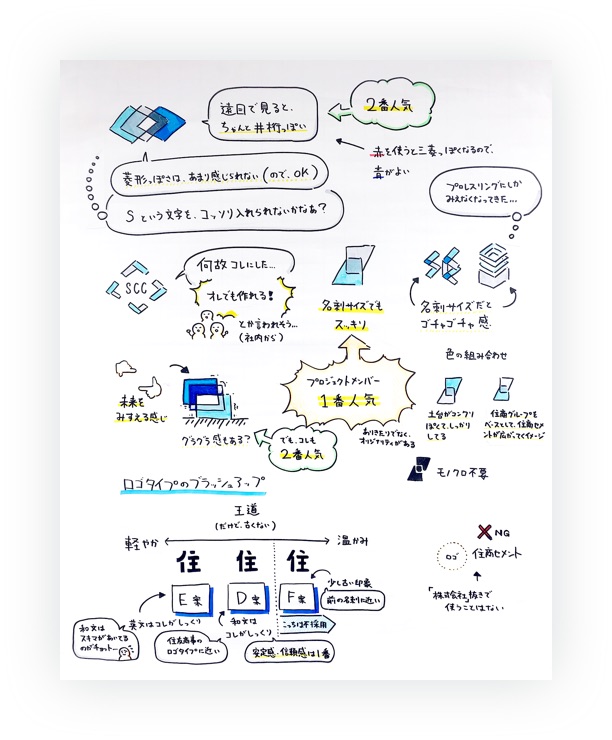 遠目で見ると、
ちゃんと井桁っぽい
2番人気
赤を使うと三菱っぽくなるので、
青がよい
菱形っぽさは、あまり感じられない(ので、OK)
Sという文字を、コッソリ入れられないかなぁ?
プロレスリングにしか
みえなくなってきた…
SCC
何故コレにした…
オレでも作れる!
とか言われそう…
(社内から)
名刺サイズでも
スッキリ
名刺サイズだと
ゴチャゴチャ感
色の組み合わせ
未来を
みすえる感じ
グラグラ感もある?
プロジェクトメンバー
1番人気
でも、コレも
2番人気
ありきたりでなく、
オリジナリティがある
土台がコンクリ
ぽくて、しっかり
してる
住商グループを
ベースとして、住商セメ
ントが広がってくイメージ
モノクロ不要
ロゴタイプのブラッシュアップ
王道
(だけど、古くない)
軽やか
温かみ
住 住 住
E案
D案
F案
少し古い印象
前の名刺に近い
こっちは不採用
英文はコレがしっくり
和文は
コレがしっくり
和文は
スキマがあいてる
のがチョット…
住友商事の
ロゴタイプに近い
安定感・信頼感は1番
NG
ロゴ
住商セメント
「株式会社」抜きで
使うことはない